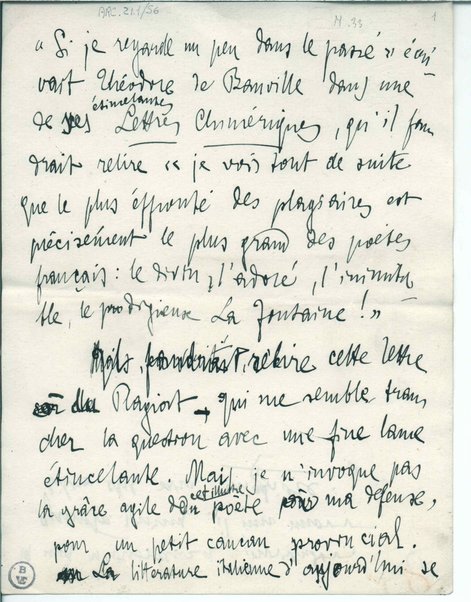 ARC. 21.1/56 M 33 1
« Si je regarde un peu dans le passé » écri
vait Théodore de Banville dans une
étincelantes
de ses Lettres Chimériques, qu'il fau
drait relire « je vois tout de suite
que le plus éffronté des plagiaires est
précisément le plus grand des poètes
français : le divin, l'adoré, l'inimita
ble, le prodigieuse La Fontaine ! »
relire cette lettre
du Ragiort, qui me semble tran
cher la question avec une fine lame
étincelante. Mais je n'invoque pas
cet illustre
la grâce agile poète ma défense,
pour un petit cancan provincial.
La littérature italienne d'aujourd'hui se